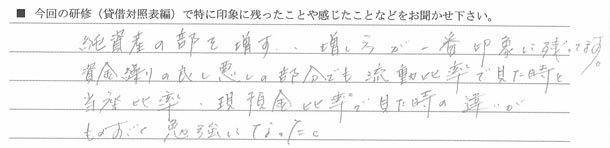 ■ 今回の研修（貸借対照表編）で特に印象に残ったことや感じたことなどをお聞かせ下さい。
純資産の部を増す、増し方が一番印象に残ってます。
資金繰りの良し悪しの部分でも流動比率で見た時と
当座比率、現預金比率で見た時の違いが
ものすごく勉強になった。